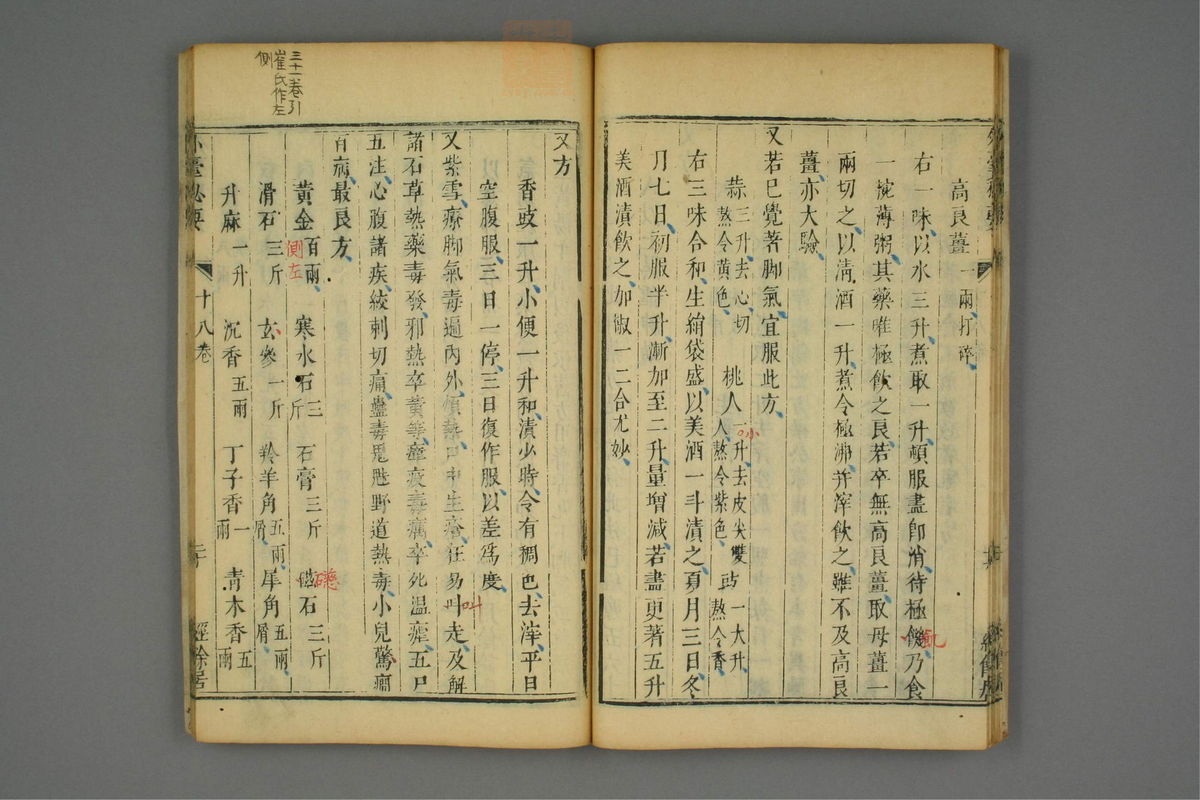 高良薑一兩打碎
右一味以水三升煮取一升頓服盡卽消待極饑乃食
一椀薄粥其藥唯極飲之良若卒無高良薑取母薑一
兩切之以淸酒一升煮令極沸并滓飲之雖不及高良
薑亦大驗
又若已覺著脚氣宜服此方
蒜三升去心切熬令黄色 桃人一升去皮尖雙人熬令紫色 豉一大升熬令香
右三味合和生絹袋盛以美酒一斗漬之夏月三日冬
月七日初服半升漸加至二升量增減若盡更著五升
美酒漬飲之加椒一二合尤妙
又方
香豉一升小便一升和漬少時令有稠色去滓平旦
以空腹服三日一停三日復作服以差爲度
又紫雪療脚氣毒遍內外煩熱口中生瘡狂易叫走及解
諸石草熱藥毒發邪熱卒黄等瘴疫毒癘卒死温瘧五尸
五注心腹諸疾絞刺切痛蠱毒鬼魅野道熱毒小兒驚癇
百病最良方
黄金百兩 寒水石三斤 石膏三斤 磁石三斤
滑石三斤 玄參一斤 羚羊角五兩屑 犀角五兩屑
升麻一升 沉香五兩 丁子香一兩 青木香五兩
外臺祕要 十八卷 二十 經餘居
三十一卷引
崔氏作左
側
側左
小
叫